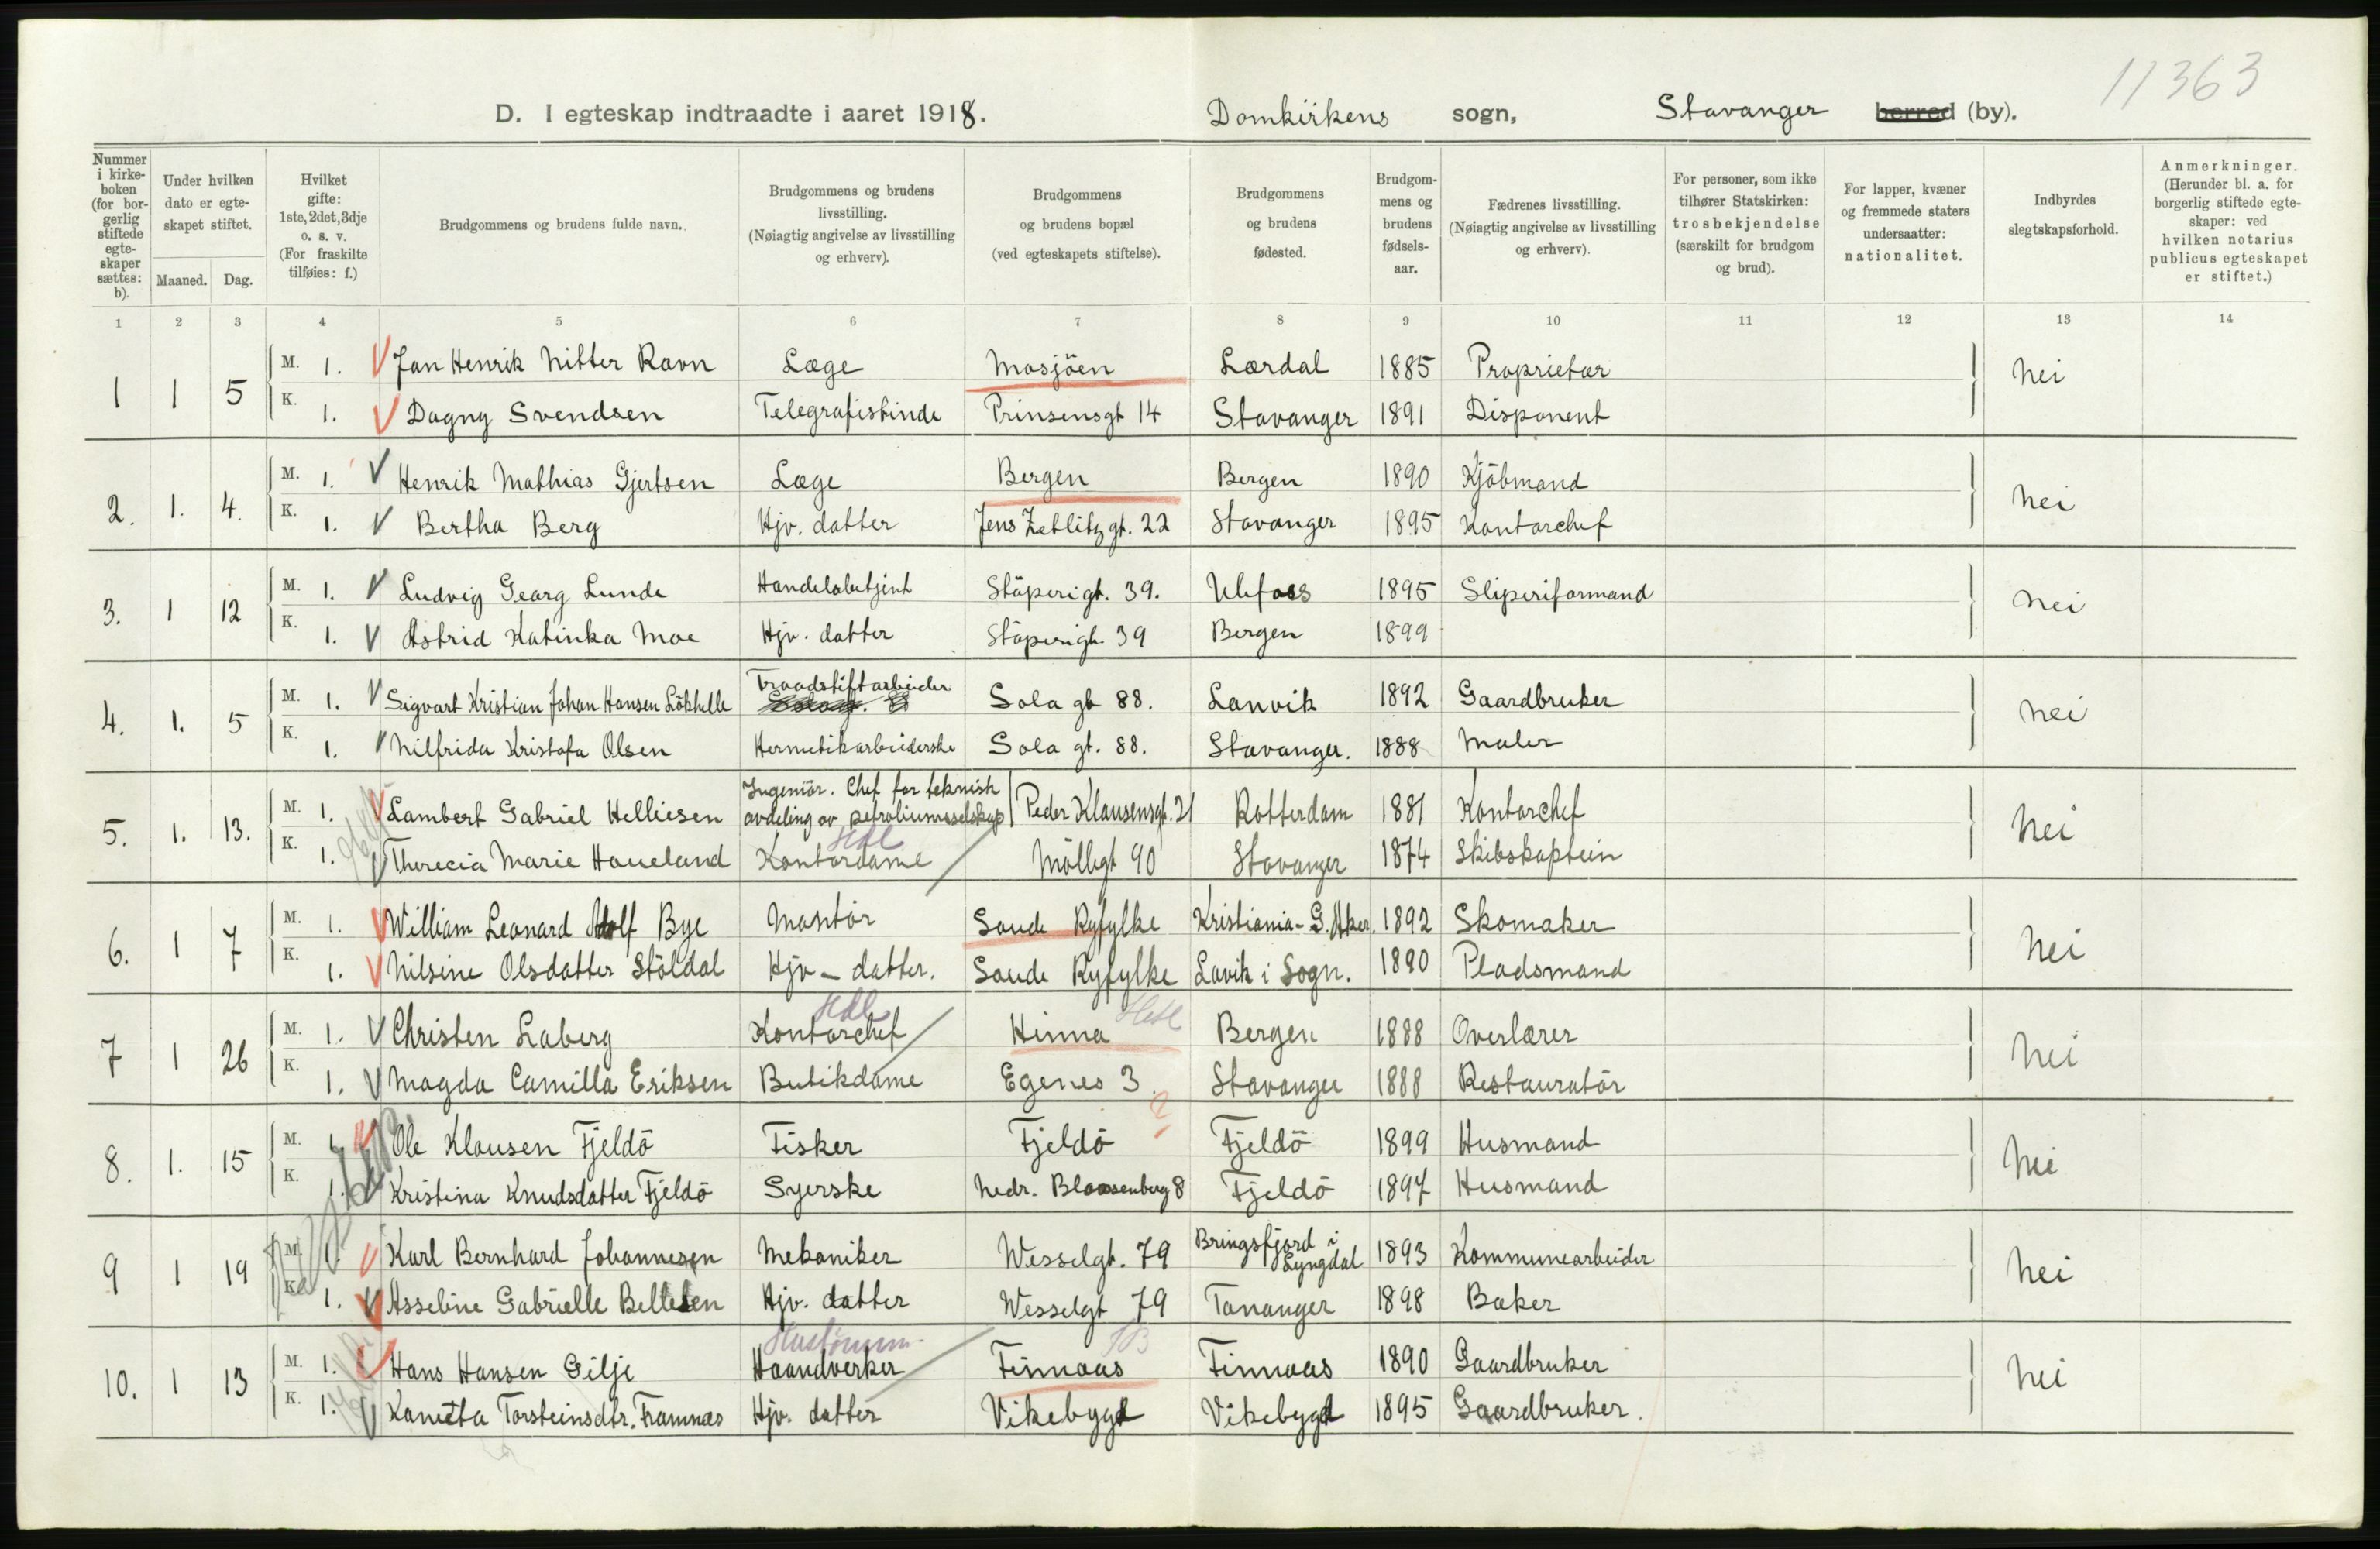 11363
D. I egteskap indtraadte i aaret 1918. Domkirkens sogn, Stavanger herred (by).
Nummer i kirkeboken (for borgerlig stiftede egteskaper sættes: b).
Under hvilken dato er egteskapet stiftet. Maaned. Dag.
Hvilket gifte: 1ste, 2det, 3dje o. s. v. (For fraskilte tilføies: f.)
Brudgommens og brudens fulde navn.
Brudgommens og brudens livsstilling. (Nøiagtig angivelse av livsstilling og erhverv).
Brudgommens og brudens bopæl (ved egteskapets stiftelse).
Brudgommens og brudens fødested.
Brudgommens og brudens fødselsaar.
Fædrenes livsstilling. (Nøiagtig angivelse av livsstilling og erhverv).
For personer, som ikke tilhører Statskirken: trosbekjendelse (særskilt for brudgom og brud).
For lapper, kvæner og fremmede staters undersaatter: nationalitet.
Indbyrdes slegtskapsforhold.
Anmerkninger. (Herunder bl. a. for borgerlig stiftede egteskaper: ved hvilken notarius publicus egteskapet er stiftet.)
1 2 3 4 5 6 7 8 9 10 11 12 13 14
1 1 5 M. 1. Jan Henrik Nitter Ravn Læge Mosjöen Lærdal 1885 Proprietær nei
K. 1. Dagny Svendsen Telegrafistinde Prinsensgt 14 Stavanger 1891 Disponent
2. 1. 4. M. 1. Henrik Mathias Gjertsen Læge Bergen Bergen 1890 Kjöbmand nei
K. 1. Bertha Berg Hjv. datter Jens Zetlitz gt. 22 Stavanger 1895 Kontorchef
3. 1 12 M. 1. Ludvig Georg Lunde Handelsbetjent Stöperigt. 39. Ulefoss 1895 Sliperiformand nei
K. 1. Astrid Katinka Moe Hjv. datter Stöperigt. 39 Bergen 1899
4. 1. 5 M. 1. Sigvart Kristian Johan Hansen Lökhelle Traadstiftarbeider Sola gt 88. Lanvik 1892 Gaardbruker nei
K. 1. Nilfrida Kristofa Olsen Hermetikarbeiderske Sola gt. 88. Stavanger. 1888 Maler
5. 1. 13. M. 1. Lambert Gabriel Helliesen Ingeniör. Chef for teknisk avdeling av petroliumsselskap Peder Klausensgt. 21 Rotterdam 1881 Kontorchef nei
K. 1. Therecia Marie Haueland Kontordame Möllegt 90 Stavanger 1874 Skibskaptein
6. 1 7 M. 1. William Leonard Adolf Bye Montör Saude Ryfylke Kristiania - G. Aker. 1892 Skomaker nei
K. 1. Nilsine Olsdatter Stöldal Hjv - datter. Saude Ryfylke Lavik i Sogn. 1890 Pladsmand
7 1 26 M. 1. Christen Laberg Kontorchef Hinna Bergen 1888 Overlærer nei
K. 1. Magda Camilla Eriksen Butikdame Egenes 3 Stavanger 1888 Restauratör
8. 1. 15 M. 1. Ole Klausen Fjeldö Fisker Fjeldö Fjeldö 1899 Husmand nei
K. 1. Kristina Knudsdatter Fjeldö Syerske Nedr. Blaasenberg 8 Fjeldö 1897 Husmand
9 1 19 M. 1. Karl Bernhard Johannesen Mekaniker Wesselgt. 79 Bringsfjord i Lyngdal 1893 Kommunearbeider nei
K. 1. Asseline Gabrielle Bellesen Hjv. datter Wesselgt 79 Tananger 1898 Baker
10. 1 13 M. 1. Hans Hansen Gilje Haandverker Finnaas Finnaas 1890 Gaardbruker nei
K. 1. Torsteinsdtr. Framnæs Hjv. datter Vikebygd Vikebygd 1895 Gaardbruker.